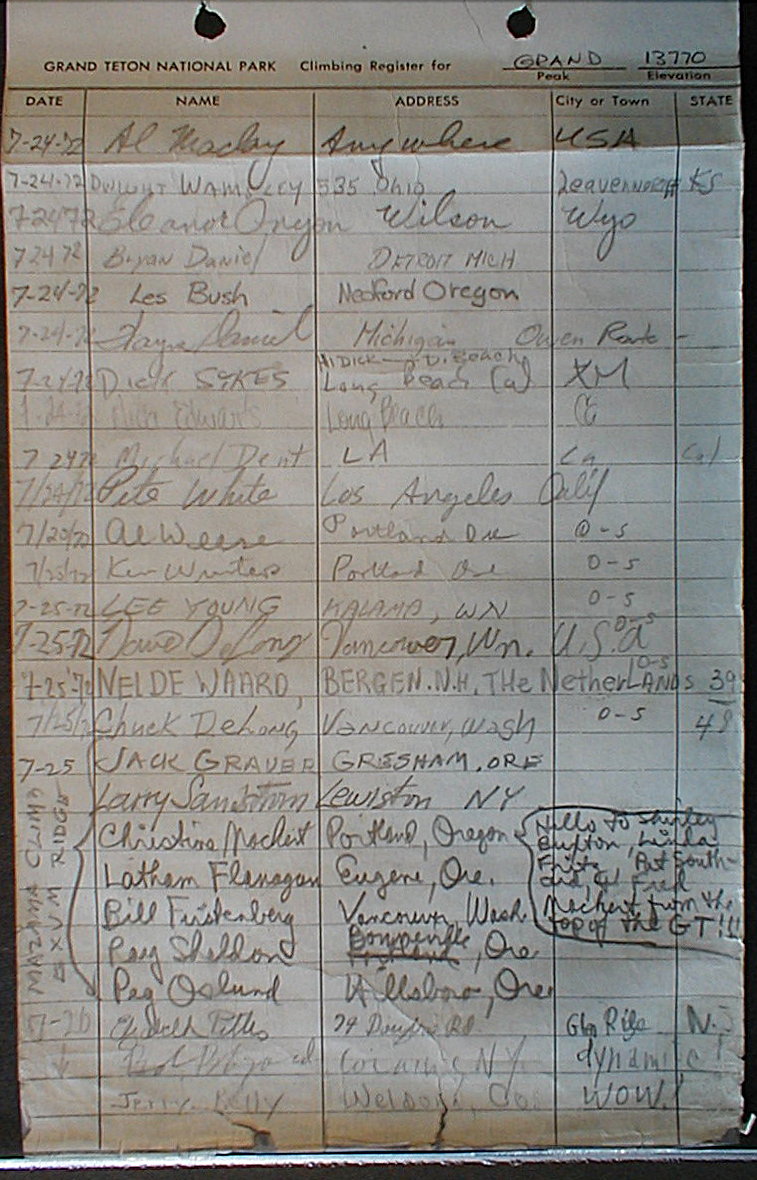 GRAND TETON NATIONAL PARK Climbing Register for GRAND 13770
Peak Elevation
DATE NAME ADDRESS City or Town STATE
7-24-72 Al Maclay Anywhere USA
7-24-72 DWIGHT 535 Ohio Leavenworth KS
7-24 72 Eleanor Wilson Wyo
7 24 72 Bryan Daniel DETROIT MICH
7-24-72 Les Bush Medford Oregon
7-24-72 Wayne Daniel Michigan Owen Route -
HI DICK D. Beach
7-24-72 DICK SYKES Long Beach Cal XM
7-24-72 Edwards Long Beach
7 24 72 Michael Dent LA Ca Cal
7/24/72 Pete White Los Angeles Calif
7/25/72 Al Weese Portland Ore O-S
7/25/72 Ken Winters Portland Ore O-S
7-25-72 LEE YOUNG KALAMA, WN O-S
7-25-72 Dave DeLong Vancouver, Wn. U.S.A O-S
7-25-72 NEL DE WAARD, BERGEN.N.H. THe NetherLANDS O-S 39
7/25/72 Chuck DeLong VANCOUVER, WASH O-S 48
7-25 JACK GRAUER GRESHAM, ORE
Larry Sandstrom Lewiston NY
MAZAMA CLIMB EXUM RIDGE
Christine Mackert Portland, Oregon
Latham Flanagan Eugene, Ore.
Bill Firstenberg Vancouver, Wash
Roey Sheldon , Ore
Peg Oslund Hillsboro, Ore
Hello to Shirley
Buxton, Linda
Pat South-
& Fred
Mackert from the
top of the GT!!!
7-26 Rd Glen Ridge N.J
NY. dynamic!
Jerry Kelly WOW!